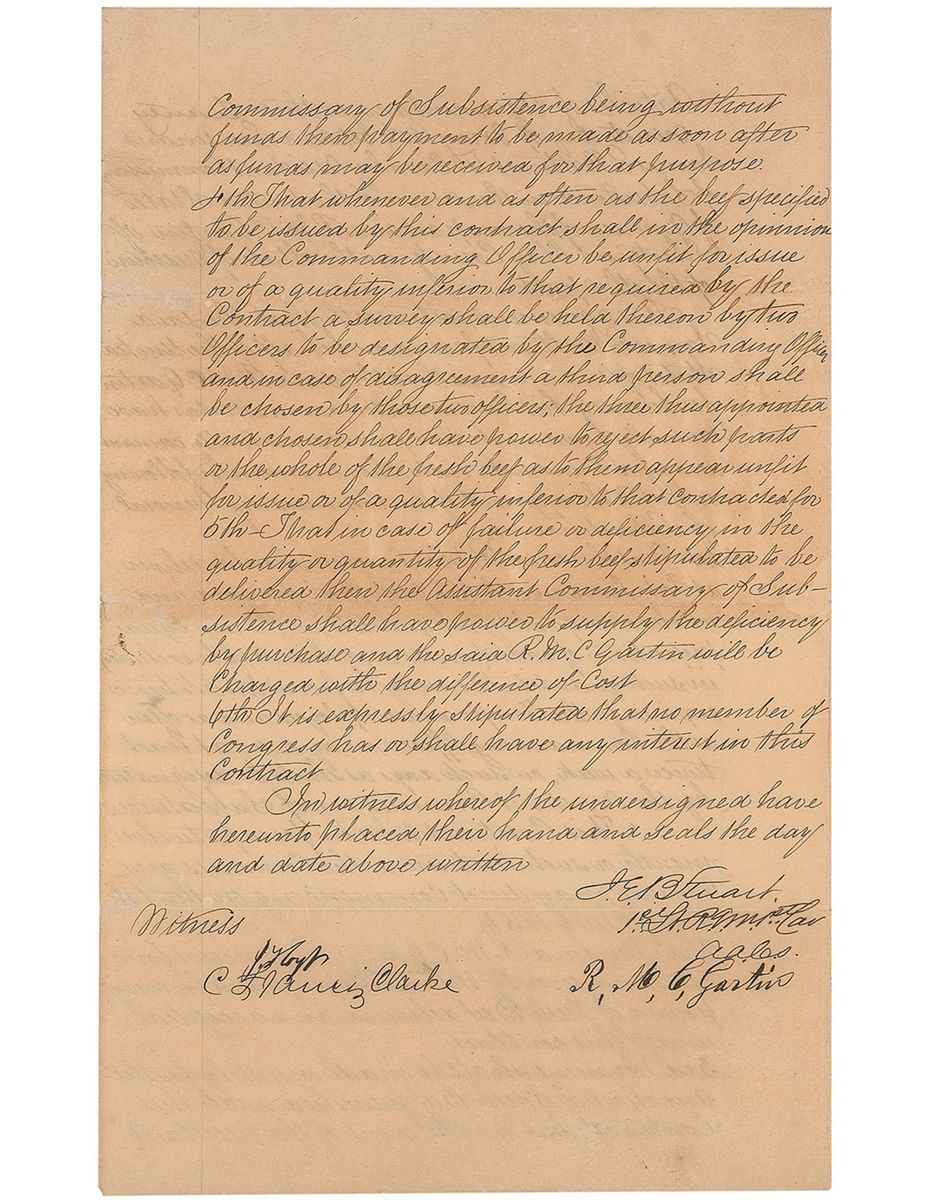 Commissary of Subsistence being without
funds then payment to be made as soon after
as funds may be received for that purpose.
4th That whenever and as often as the beef specified
to be issued by this contract shall in the opinion
of the Commanding Officer be unfit for issue
or of a quality inferior to that required by the
Contract a survey shall be held thereon by two
Officers to be designated by the Commanding Officer
and in case of disagreement a third person shall
be chosen by those two officers; the three thus appointed
and chosen shall have power to reject such parts
or the whole of the fresh beef as to them appear unfit
for issue or of a quality inferior to that contracted for
5th - That in case of failure or deficiency in the
quality or quantity of the fresh beef stipulated to be
delivered then the Assistant Commissary of Sub-
sistence shall have power to supply the deficiency
by purchase and the said R. M. C Gartin will be
Charged with the difference of Cost
6th It is expressly stipulated that no member of
Congress has or shall have any interest in this
Contract
In witness whereof the undersigned have
hereunto placed their hand and seals the day
and date above written
J. E. B Stuart.
1st Lt. R.Q.M. 1st Cav
Witness
a.a.c.s.
C Francis Clarke
R. M. C. Gartin